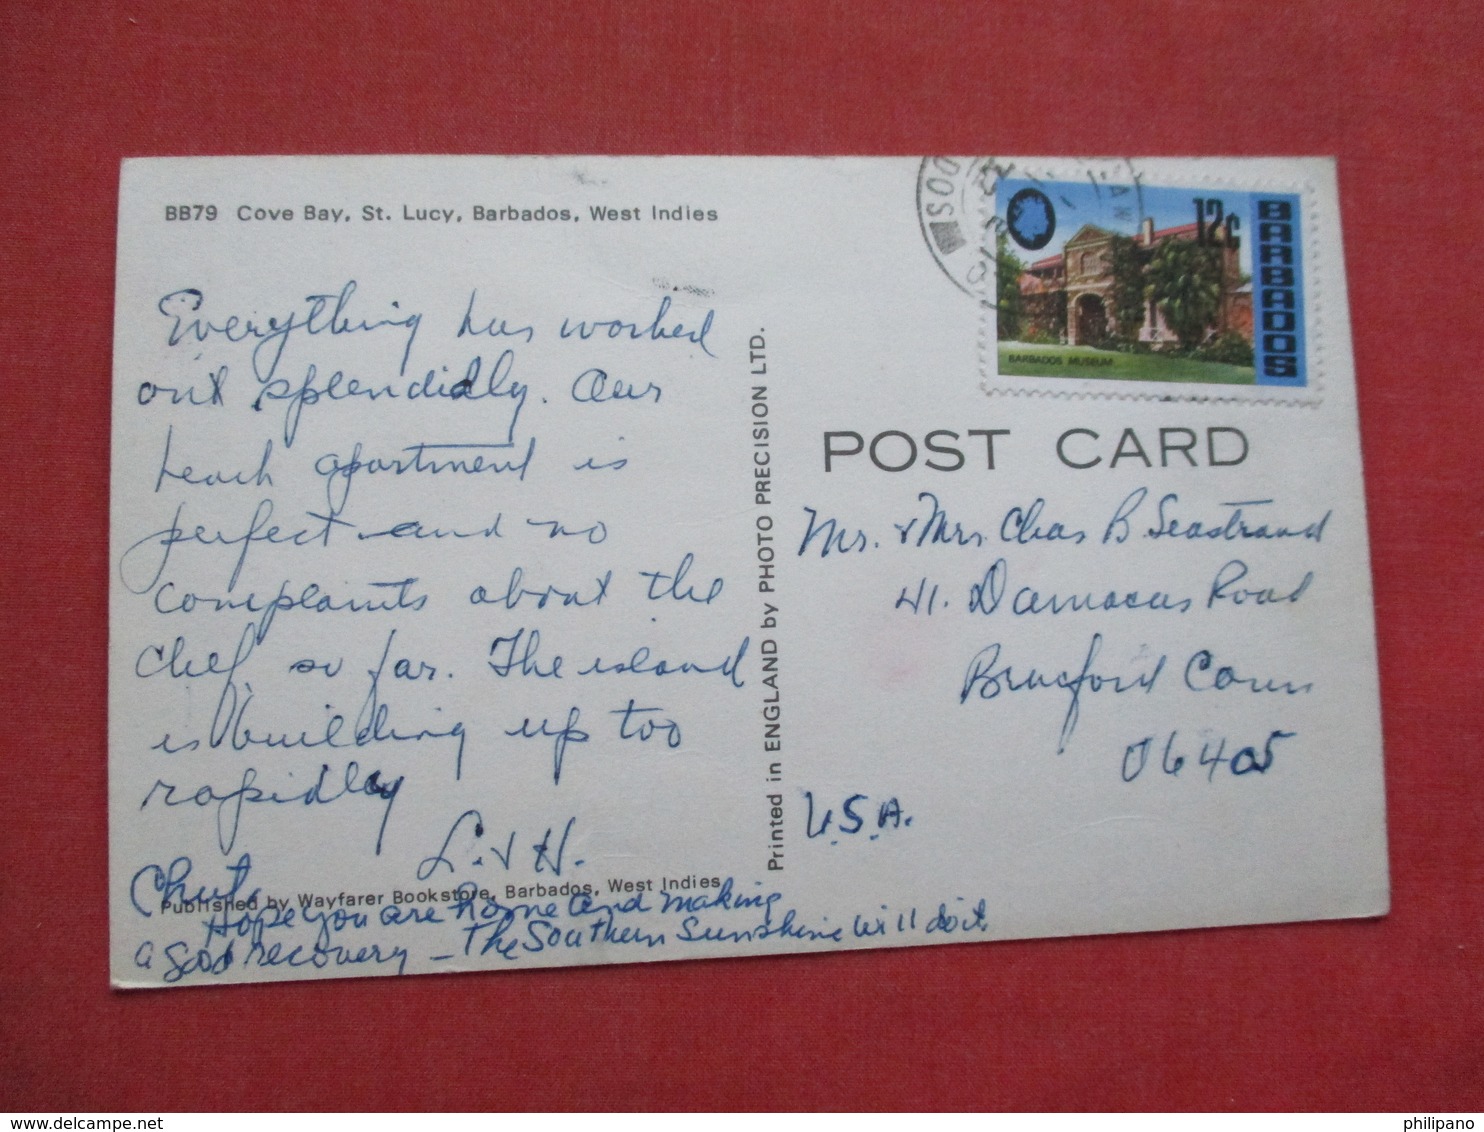 BB79 Cove Bay, St. Lucy, Barbados, West Indies
Everything has worked
out splendidly. Our
beach apartment is
perfect and no
complaints about the
chef so far. The island
is building up too
rapidly
L. & H.
Published by Wayfarer Bookstore, Barbados, West Indies
Hope you are home and making
a good recovery - The Southern Sunshine will do it
Printed in ENGLAND by PHOTO PRECISION LTD.
12c
BARBADOS
BARBADOS MUSEUM
POST CARD
Mr. & Mrs. Chas B. Seastrand
41. Damascus Road
Branford Conn
06405
U.S.A.
philipano